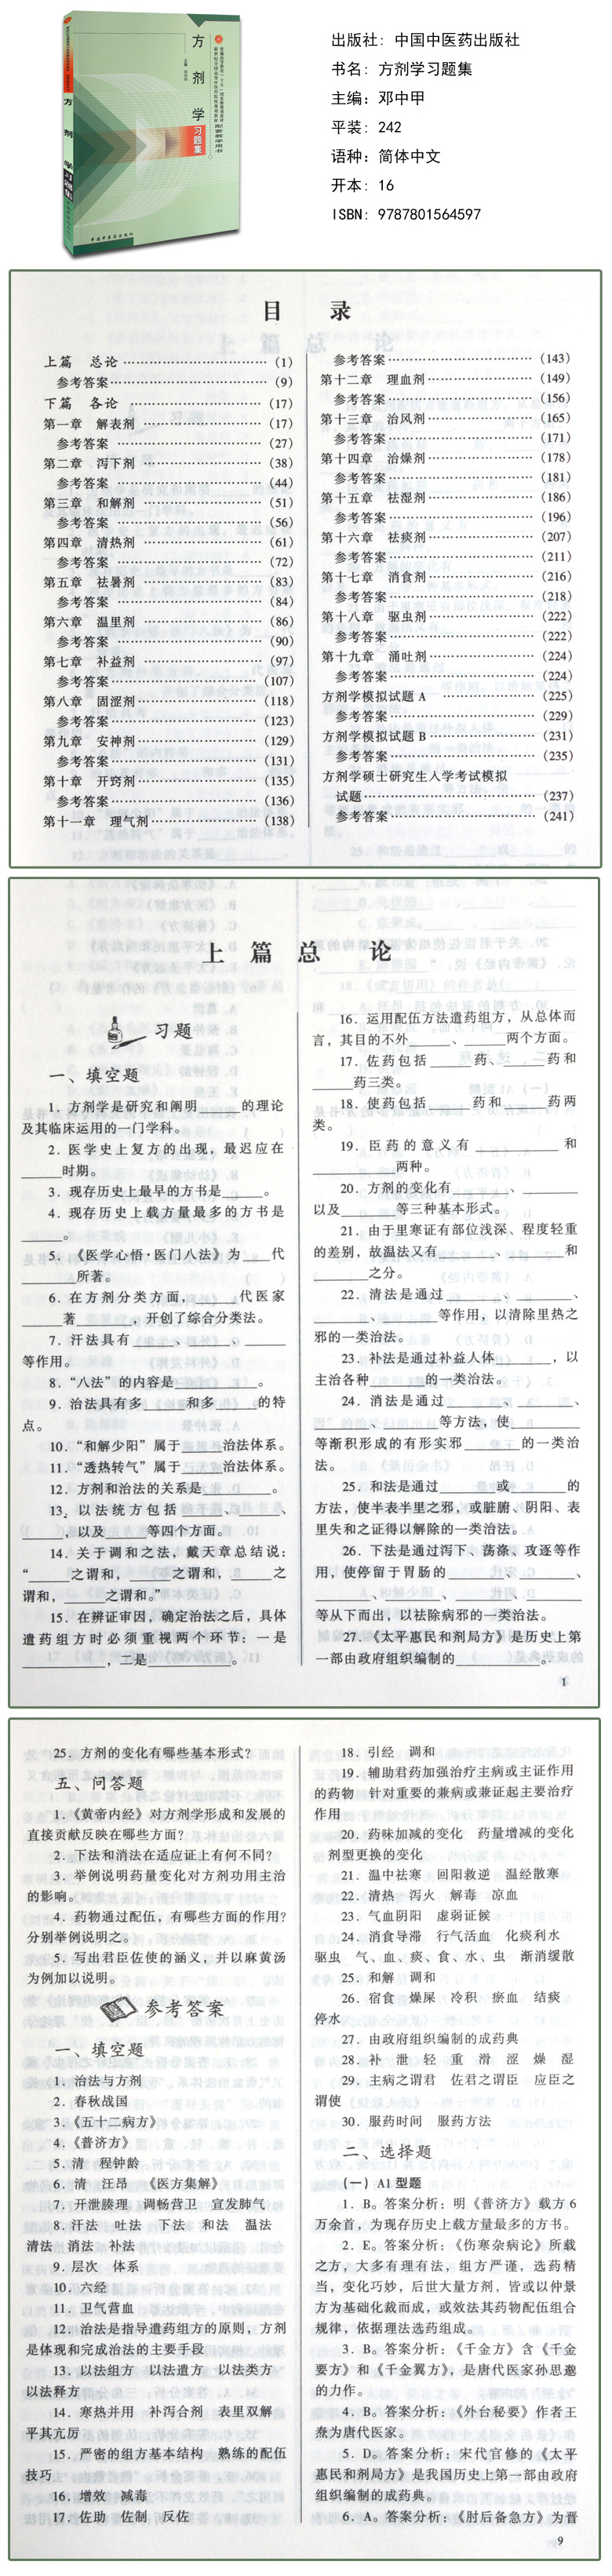 方剂学
习题集
配套教学用书
方剂学习题集
中国中医药出版社
出版社: 中国中医药出版社
书名: 方剂学习题集
主编: 邓中甲
平装: 242
语种: 简体中文
开本: 16
ISBN: 9787801564597
目 录
上篇 总论 (1)
参考答案 (9)
下篇 各论 (17)
第一章 解表剂 (17)
参考答案 (27)
第二章 泻下剂 (38)
参考答案 (44)
第三章 和解剂 (51)
参考答案 (56)
第四章 清热剂 (61)
参考答案 (72)
第五章 祛暑剂 (83)
参考答案 (84)
第六章 温里剂 (86)
参考答案 (90)
第七章 补益剂 (97)
参考答案 (107)
第八章 固涩剂 (118)
参考答案 (123)
第九章 安神剂 (129)
参考答案 (131)
第十章 开窍剂 (135)
参考答案 (136)
第十一章 理气剂 (138)
参考答案 (143)
第十二章 理血剂 (149)
参考答案 (156)
第十三章 治风剂 (165)
参考答案 (171)
第十四章 治燥剂 (178)
参考答案 (181)
第十五章 祛湿剂 (186)
参考答案 (196)
第十六章 祛痰剂 (207)
参考答案 (211)
第十七章 消食剂 (216)
参考答案 (218)
第十八章 驱虫剂 (222)
参考答案 (222)
第十九章 涌吐剂 (224)
参考答案 (224)
方剂学模拟试题 A (225)
参考答案 (229)
方剂学模拟试题 B (231)
参考答案 (235)
方剂学硕士研究生入学考试模拟
试题 (237)
参考答案 (241)
上 篇 总 论
习题
一、填空题
1. 方剂学是研究和阐明______的理论
及其临床运用的一门学科。
2. 医学史上复方的出现，最迟应在
______时期。
3. 现存历史上最早的方书是______。
4. 现存历史上载方量最多的方书是
______。
5. 《医学心悟·医门八法》为___代
________所著。
6. 在方剂分类方面，______代医家
______著________，开创了综合分类法。
7. 汗法具有______、______、______
等作用。
8. “八法”的内容是________。
9. 治法具有多______和多______的特
点。
10. “和解少阳”属于______治法体系。
11. “透热转气”属于______治法体系。
12. 方剂和治法的关系是__________。
13. 以法统方包括______、______、
______，以及______等四个方面。
14. 关于调和之法，戴天章总结说：
“______之谓和，______之谓和，______之
谓和，______之谓和。”
15. 在辨证审因，确定治法之后，具体
遣药组方时必须重视两个环节：一是
____________，二是____________。
16. 运用配伍方法遣药组方，从总体而
言，其目的不外______、______两个方面。
17. 佐药包括______药、______药和
______药三类。
18. 使药包括______药和______药两
类。
19. 臣药的意义有____________和
____________两种。
20. 方剂的变化有________、________
以及________等三种基本形式。
21. 由于里寒证有部位浅深、程度轻重
的差别，故温法又有________、________和
________之分。
22. 清法是通过________、________、
________、________等作用，以清除里热之
邪的一类治法。
23. 补法是通过补益人体________，以
主治各种________的一类治法。
24. 消法是通过________、________、
________、________等方法，使________
等渐积形成的有形实邪________的一类治
法。
25. 和法是通过______或________的
方法，使半表半里之邪，或脏腑、阴阳、表
里失和之证得以解除的一类治法。
26. 下法是通过泻下、荡涤、攻逐等作
用，使停留于胃肠的________、________、
________、________、________、________
等从下而出，以祛除病邪的一类治法。
27. 《太平惠民和剂局方》是历史上第
一部由政府组织编制的____________。
1
25. 方剂的变化有哪些基本形式？
五、问答题
1. 《黄帝内经》对方剂学形成和发展的
直接贡献反映在哪些方面？
2. 下法和消法在适应证上有何不同？
3. 举例说明药量变化对方剂功用主治
的影响。
4. 药物通过配伍，有哪些方面的作用？
分别举例说明之。
5. 写出君臣佐使的涵义，并以麻黄汤
为例加以说明。
参考答案
一、填空题
1. 治法与方剂
2. 春秋战国
3. 《五十二病方》
4. 《普济方》
5. 清 程钟龄
6. 清 汪昂 《医方集解》
7. 开泄腠理 调畅营卫 宣发肺气
8. 汗法 吐法 下法 和法 温法
清法 消法 补法
9. 层次 体系
10. 六经
11. 卫气营血
12. 治法是指导遣药组方的原则，方剂
是体现和完成治法的主要手段
13. 以法组方 以法遣方 以法类方
以法释方
14. 寒热并用 补泻合剂 表里双解
平其亢厉
15. 严密的组方基本结构 熟练的配伍
技巧
16. 增效 减毒
17. 佐助 佐制 反佐
18. 引经 调和
19. 辅助君药加强治疗主病或主证作用
的药物 针对重要的兼病或兼证起主要治疗
作用
20. 药味加减的变化 药量增减的变化
剂型更换的变化
21. 温中祛寒 回阳救逆 温经散寒
22. 清热 泻火 解毒 凉血
23. 气血阴阳 虚弱证候
24. 消食导滞 行气活血 化痰利水
驱虫 气、血、痰、食、水、虫 渐消缓散
25. 和解 调和
26. 宿食 燥屎 冷积 瘀血 结痰
停水
27. 由政府组织编制的成药典
28. 补 泄 轻 重 滑 涩 燥 湿
29. 主病之谓君 佐君之谓臣 应臣之
谓使
30. 服药时间 服药方法
二、选择题
（一）A1 型题
1. B。答案分析：明《普济方》载方 6
万余首，为现存历史上载方量最多的方书。
2. E。答案分析：《伤寒杂病论》所载
之方，大多有理有法，组方严谨，选药精
当，变化巧妙，后世大量方剂，皆或以仲景
方为基础化裁而成，或效法其药物配伍组合
规律，依据理法选药组成。
3. B。答案分析：《千金方》含《千金
要方》和《千金翼方》，是唐代医家孙思邈
的力作。
4. B。答案分析：《外台秘要》作者王
焘为唐代医家。
5. D。答案分析：宋代官修的《太平
惠民和剂局方》是我国历史上第一部由政府
组织编制的成药典。
6. A。答案分析：《肘后备急方》为晋
9